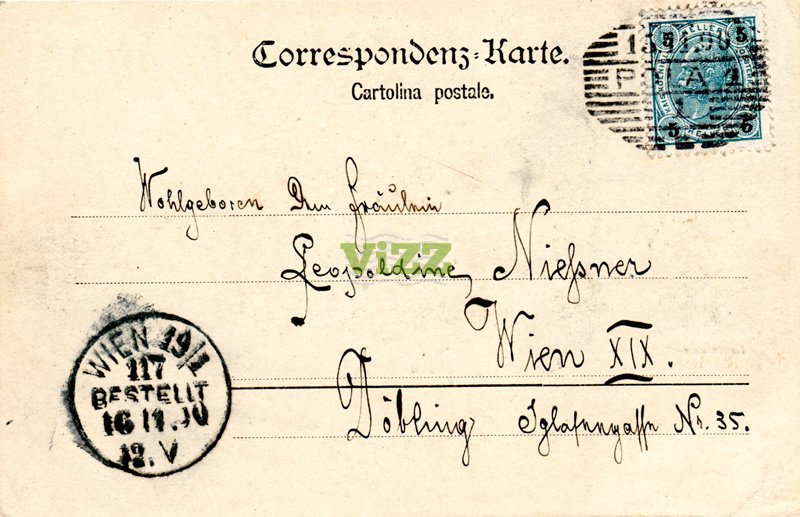 Correspondenz-Karte.
Cartolina postale.
5 5
5 5
Wohlgeboren Dem Fräulein
Leopoldine Nießner
Wien XIX.
Döbling Iglaseegasse Nr. 35.
ViZZ
WIEN 19/1
117
BESTELLT
12. V